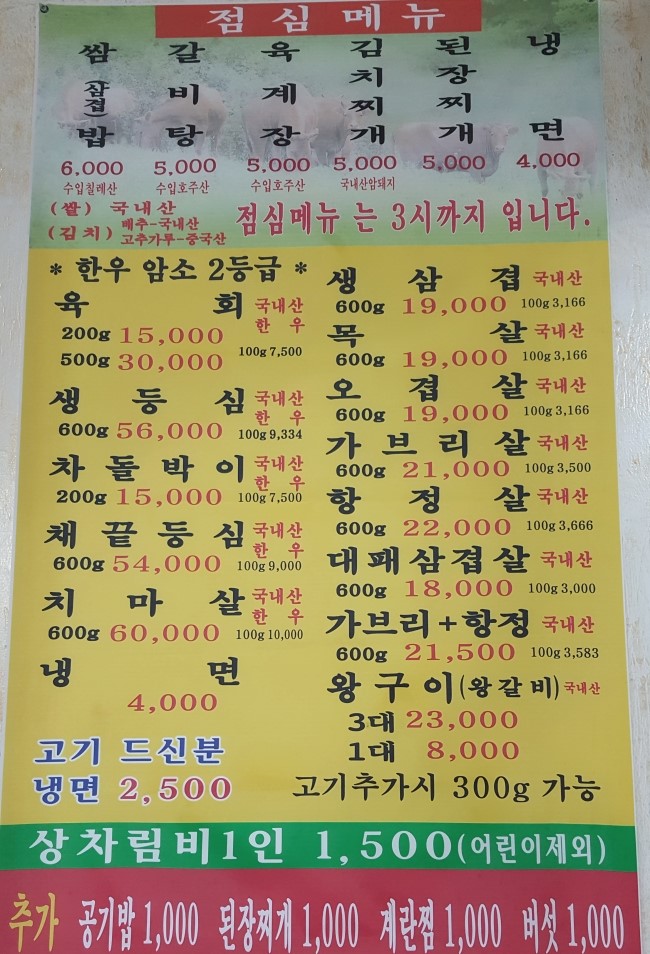 점심메뉴
쌈(삼겹)밥 갈비탕 육계장 김치찌개 된장찌개 냉면
6,000 5,000 5,000 5,000 5,000 4,000
수입칠레산 수입호주산 수입호주산 국내산암돼지
(쌀) 국내산
(김치) 배추-국내산
고추가루-중국산
점심메뉴 는 3시까지 입니다.
* 한우 암소 2등급 *
육회 국내산 한우
200g 15,000
500g 30,000 100g 7,500
생등심 국내산 한우
600g 56,000 100g 9,334
차돌박이 국내산 한우
200g 15,000 100g 7,500
채끝등심 국내산 한우
600g 54,000 100g 9,000
치마살 국내산 한우
600g 60,000 100g 10,000
냉면
4,000
고기 드신분
냉면 2,500
생삼겹 국내산
600g 19,000 100g 3,166
목살 국내산
600g 19,000 100g 3,166
오겹살 국내산
600g 19,000 100g 3,166
가브리살 국내산
600g 21,000 100g 3,500
항정살 국내산
600g 22,000 100g 3,666
대패삼겹살 국내산
600g 18,000 100g 3,000
가브리+항정 국내산
600g 21,500 100g 3,583
왕구이(왕갈비) 국내산
3대 23,000
1대 8,000
고기추가시 300g 가능
상차림비1인 1,500(어린이제외)
추가 공기밥 1,000 된장찌개 1,000 계란찜 1,000 버섯 1,000